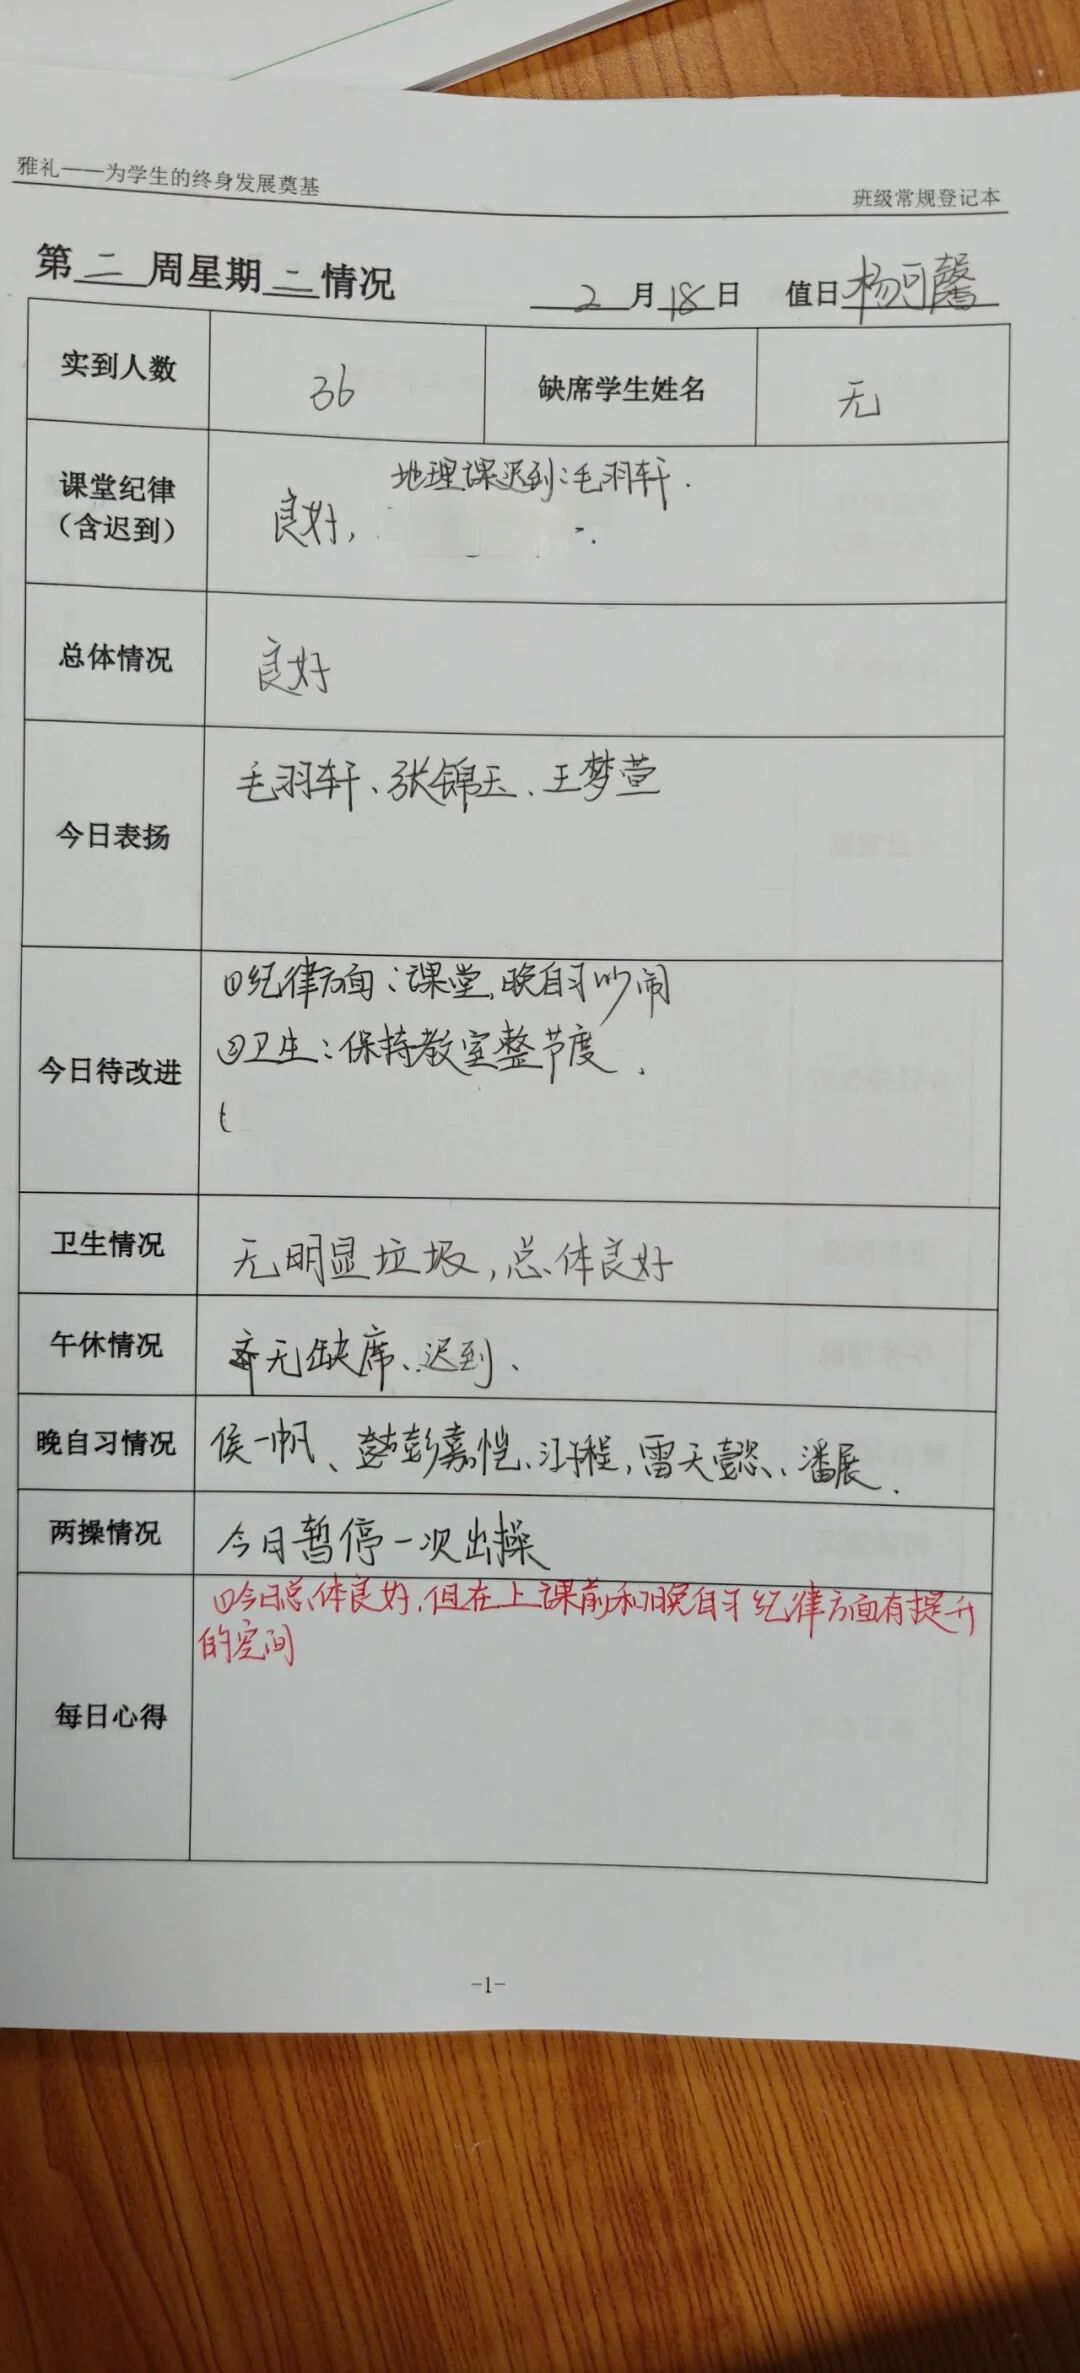 雅礼——为学生的终身发展奠基
班级常规登记本
第二周星期二情况
2月18日 值日杨可馨
实到人数 36 缺席学生姓名 无
课堂纪律
(含迟到)
地理课迟到:毛羽轩.
良好,
总体情况 良好
今日表扬 毛羽轩、张锦玉、王梦萱
今日待改进
①纪律方面:课堂,晚自习吵闹
②卫生:保持教室整节度.
卫生情况 无明显垃圾,总体良好
午休情况 无缺席、迟到.
晚自习情况 侯一帆、彭嘉恺、汪程,雷天懿、潘展.
两操情况 今日暂停一次出操
每日心得
①今日总体良好,但在上课前和晚自习纪律方面有提升
的空间
-1-